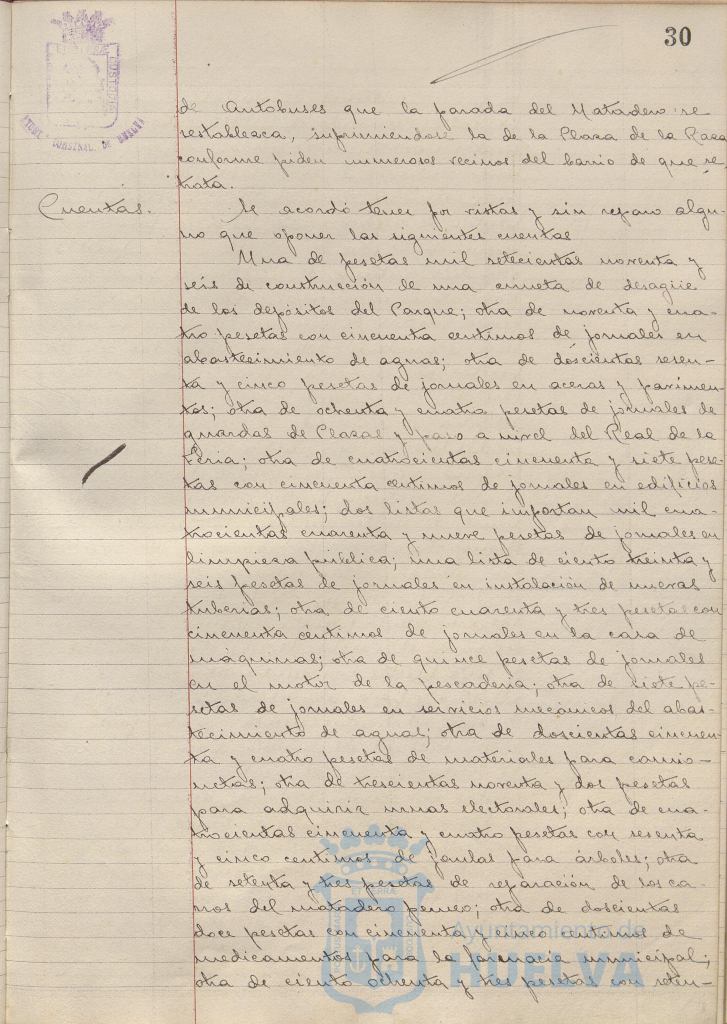 30
de Autobuses que la parada del Matadero se
restablezca, suprimiendose la de la Plaza de la Raza
conforme piden numerosos vecinos del barrio de que se
trata.
Cuentas. Se acordó tener por vistas y sin reparo algu-
no que oponer las siguientes cuentas
Una de pesetas mil setecientas noventa y
seis de construcción de una cuneta de desagüe
de los depósitos del Parque; otra de noventa y cua-
tro pesetas con cincuenta centimos de jornales en
abastecimiento de aguas; otra de doscientas sesen-
ta y cinco pesetas de jornales en aceras y pavimen-
tos; otra de ochenta y cuatro pesetas de jornales de
guardas de Plazas y paso a nivel del Real de la
Feria; otra de cuatrocientas cincuenta y siete pese-
tas con cincuenta centimos de jornales en edificios
municipales; dos listas que importan mil cua-
trocientas cuarenta y nueve pesetas de jornales en
limpieza pública; una lista de ciento treinta y
seis pesetas de jornales en instalación de nuevas
tuberias; otra de ciento cuarenta y tres pesetas con
cincuenta céntimos de jornales en la casa de
máquinas; otra de quince pesetas de jornales
en el motor de la pescaderia; otra de siete pe-
setas de jornales en servicios mecánicos del abas-
tecimiento de aguas; otra de doscientas cincuen-
ta y cuatro pesetas de materiales para camio-
netas; otra de trescientas noventa y dos pesetas
para adquirir urnas electorales; otra de cua-
trocientas cincuenta y cuatro pesetas con sesenta
y cinco centimos de jaulas para árboles; otra
de setenta y tres pesetas de reparación de los ca-
rros del matadero pcuneo; otra de doscientas
doce pesetas con cincuenta y cinco centimos de
medicamentos para la farmacia municipal;
otra de ciento ochenta y tres pesetas con seten-
Ayuntamiento de
HUELVA